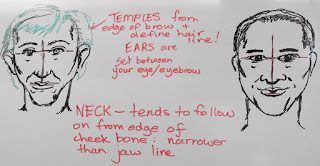 TEMPLES from
edge of brow +
define hair
line!
EARS are
set between
your eye/eyebrow
NECK – tends to follow
on from edge of
cheek bone : narrower
than jaw line